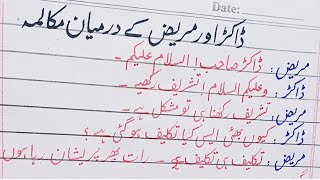 Date:
ڈاکٹر اور مریض کے درمیان مکالمہ
مریض: ڈاکٹر صاحب! السلام علیکم۔
ڈاکٹر: وعلیکم السلام! تشریف رکھیے۔
مریض: تشریف رکھنا ہی تو مشکل ہے۔
ڈاکٹر: کیوں بھئی ایسی کیا تکلیف ہو گئی ہے؟
مریض: تکلیف ہی تکلیف ہے۔ رات بھر پریشان رہا ہوں